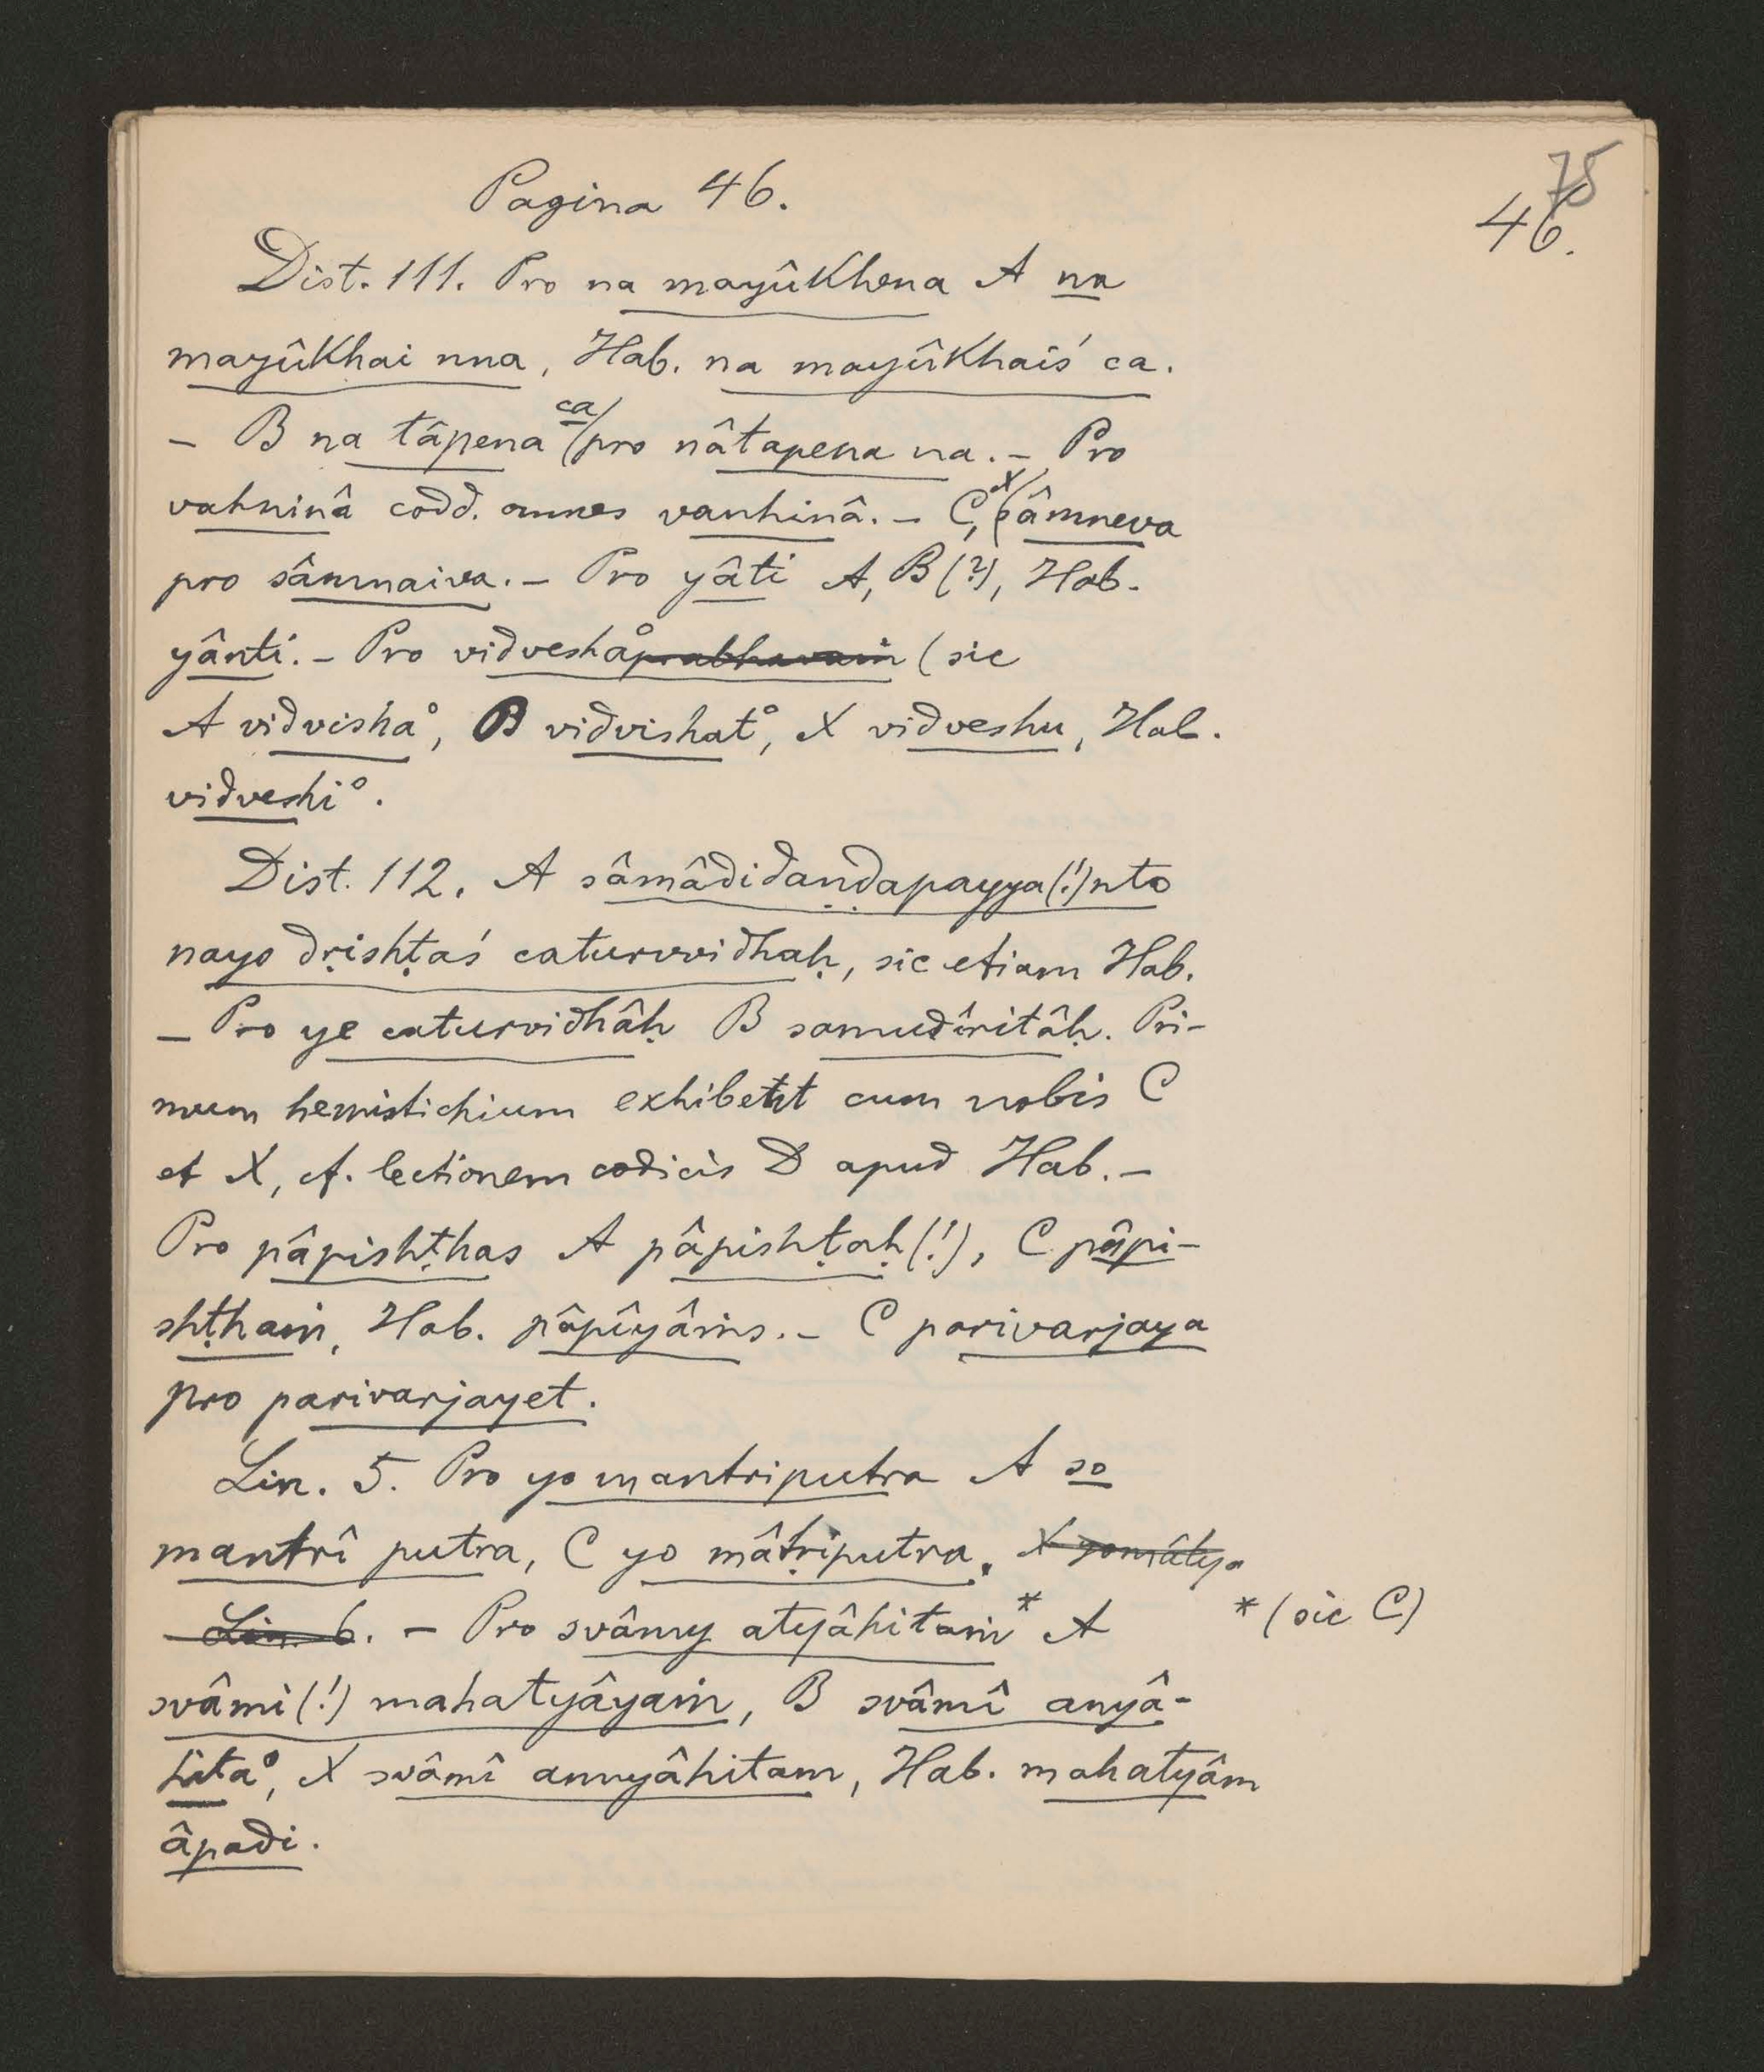 75
46.
Pagina 46.
Dist. 111. Pro na mayûkhena A na
mayûkhai nna, Hab. na mayûkhaiś ca.
– B na tâpena ca pro nâtapena na. – Pro
vahninâ codd. omnes vanhinâ. – C, X sâmneva
pro sâmnaiva. – Pro yâti A, B (?), Hab.
yânti. – Pro vidvesha° prabhavaṁ (sic
A vidvisha°, B vidvishat°, X vidveshu, Hab.
vidveshi°.
Dist. 112. A sâmâdidaṇḍapayya(!)nto
nayo dṛishṭaś caturvvidhaḥ, sic etiam Hab.
– Pro ye caturvidhâḥ B samudîritâḥ. Pri-
mum hemistichium exhibent cum nobis C
et X, cf. lectionem codicis D apud Hab. –
Pro pâpishṭhas A pâpishṭaḥ(!), C pâpi-
shṭhaṁ, Hab. pâpîyâṁs. – C parivarjaya
pro parivarjayet.
Lin. 5. Pro yo mantriputra A so
mantrî putra, C yo mâtṛiputra. X yomâtya
Lin. 6. – Pro svâmy atyâhitaṁ* A * (sic C)
svâmi(!) mahatyâyaṁ, B svâmî anyâ-
hita°, X svâmî annyâhitam, Hab. mahatyâm
âpadi.